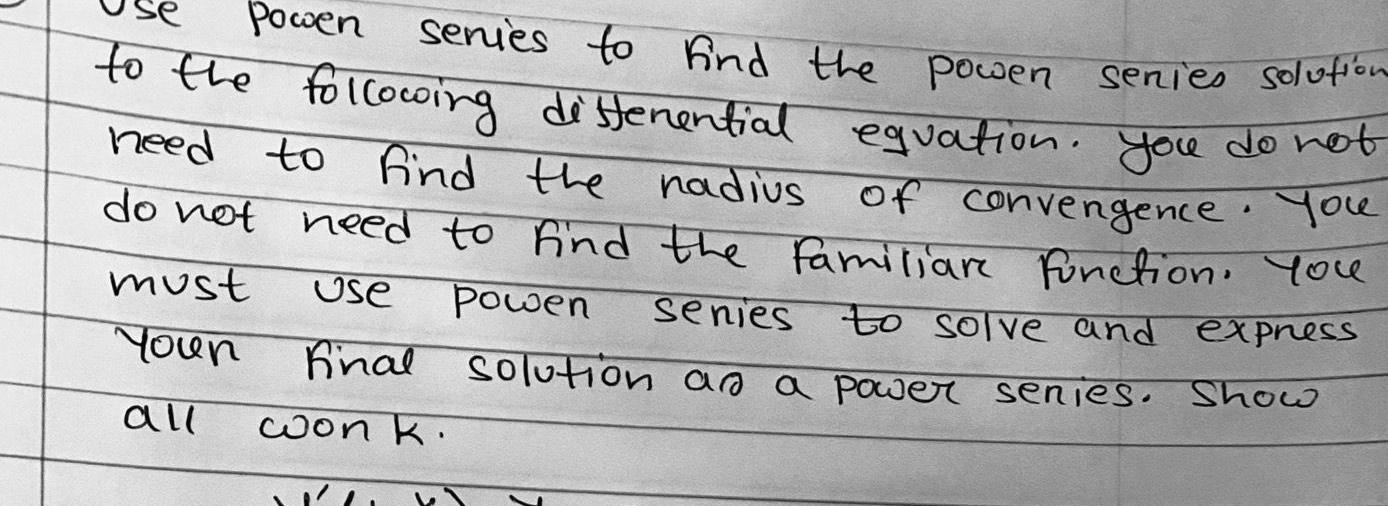 Use power series to find the power series solution
to the following differential equation. You do not
need to find the radius of convergence. You
do not need to find the familiar function. You
must use power series to solve and express
your final solution as a power series. Show
all work.